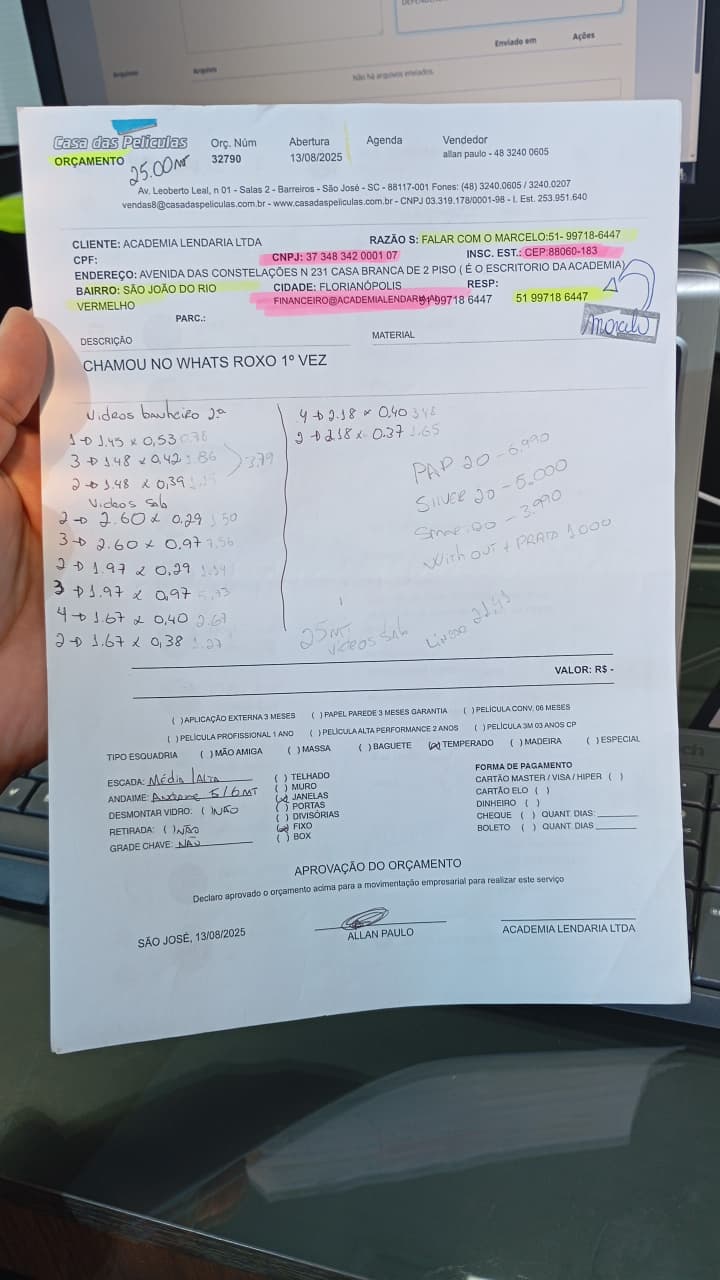 Enviado em
Ações
Arquivo
Não há arquivos enviados.
Casa das Películas
ORÇAMENTO
25.00 MT
Orç. Núm
32790
Abertura
13/08/2025
Agenda
Vendedor
allan paulo - 48 3240 0605
Av. Leoberto Leal, n 01 - Salas 2 - Barreiros - São José - SC - 88117-001 Fones: (48) 3240.0605 / 3240.0207
vendas8@casadaspeliculas.com.br - www.casadaspeliculas.com.br - CNPJ 03.319.178/0001-98 - I. Est. 253.951.640
CLIENTE: ACADEMIA LENDARIA LTDA
RAZÃO S: FALAR COM O MARCELO:51- 99718-6447
CPF:
CNPJ: 37 348 342 0001 07
INSC. EST.: CEP:88060-183
ENDEREÇO: AVENIDA DAS CONSTELAÇÕES N 231 CASA BRANCA DE 2 PISO ( É O ESCRITORIO DA ACADEMIA)
BAIRRO: SÃO JOÃO DO RIO VERMELHO
CIDADE: FLORIANÓPOLIS
RESP:
FINANCEIRO@ACADEMIALENDARIA
51 99718 6447
51 99718 6447
PARC.:
DESCRIÇÃO
MATERIAL
CHAMOU NO WHATS ROXO 1º VEZ
Videos banheiro 2ª
1 → 1.45 x 0,53 0.78
3 → 1.48 x 0,42 1.86
3.79
2 → 1.48 x 0,39 1.15
Videos Sab
2 → 2.60 x 0,29 1.50
3 → 2.60 x 0,97 7.56
2 → 1.97 x 0,29 1.14
3 → 1.97 x 0,97 5.73
4 → 1.67 x 0,40 2.67
2 → 1.67 x 0,38 1.27
4 → 2.18 x 0.40 3.48
2 → 2.18 x 0.37 1.65
PAP 20 - 6.990
Silver 20 - 5.000
20 - 3.990
Without + PRATA 1000
25 MT
Videos Sab
VALOR: R$ -
( )APLICAÇÃO EXTERNA 3 MESES ( ) PAPEL PAREDE 3 MESES GARANTIA ( )PELÍCULA CONV. 06 MESES
( )PELÍCULA PROFISSIONAL 1 ANO ( )PELÍCULA ALTA PERFORMANCE 2 ANOS ( )PELÍCULA 3M 03 ANOS CP
TIPO ESQUADRIA ( )MÃO AMIGA ( )MASSA ( )BAGUETE (x)TEMPERADO ( )MADEIRA ( )ESPECIAL
ESCADA: Média / Alta
ANDAIME: 5/6 MT
DESMONTAR VIDRO: ( )NÃO
RETIRADA: ( )NÃO
GRADE CHAVE: NÃO
( ) TELHADO
( ) MURO
(x) JANELAS
( ) PORTAS
( ) DIVISÓRIAS
(x) FIXO
( ) BOX
FORMA DE PAGAMENTO
CARTÃO MASTER / VISA / HIPER ( )
CARTÃO ELO ( )
DINHEIRO ( )
CHEQUE ( ) QUANT. DIAS:
BOLETO ( ) QUANT. DIAS
APROVAÇÃO DO ORÇAMENTO
Declaro aprovado o orçamento acima para a movimentação empresarial para realizar este serviço
SÃO JOSÉ, 13/08/2025
ALLAN PAULO
ACADEMIA LENDARIA LTDA